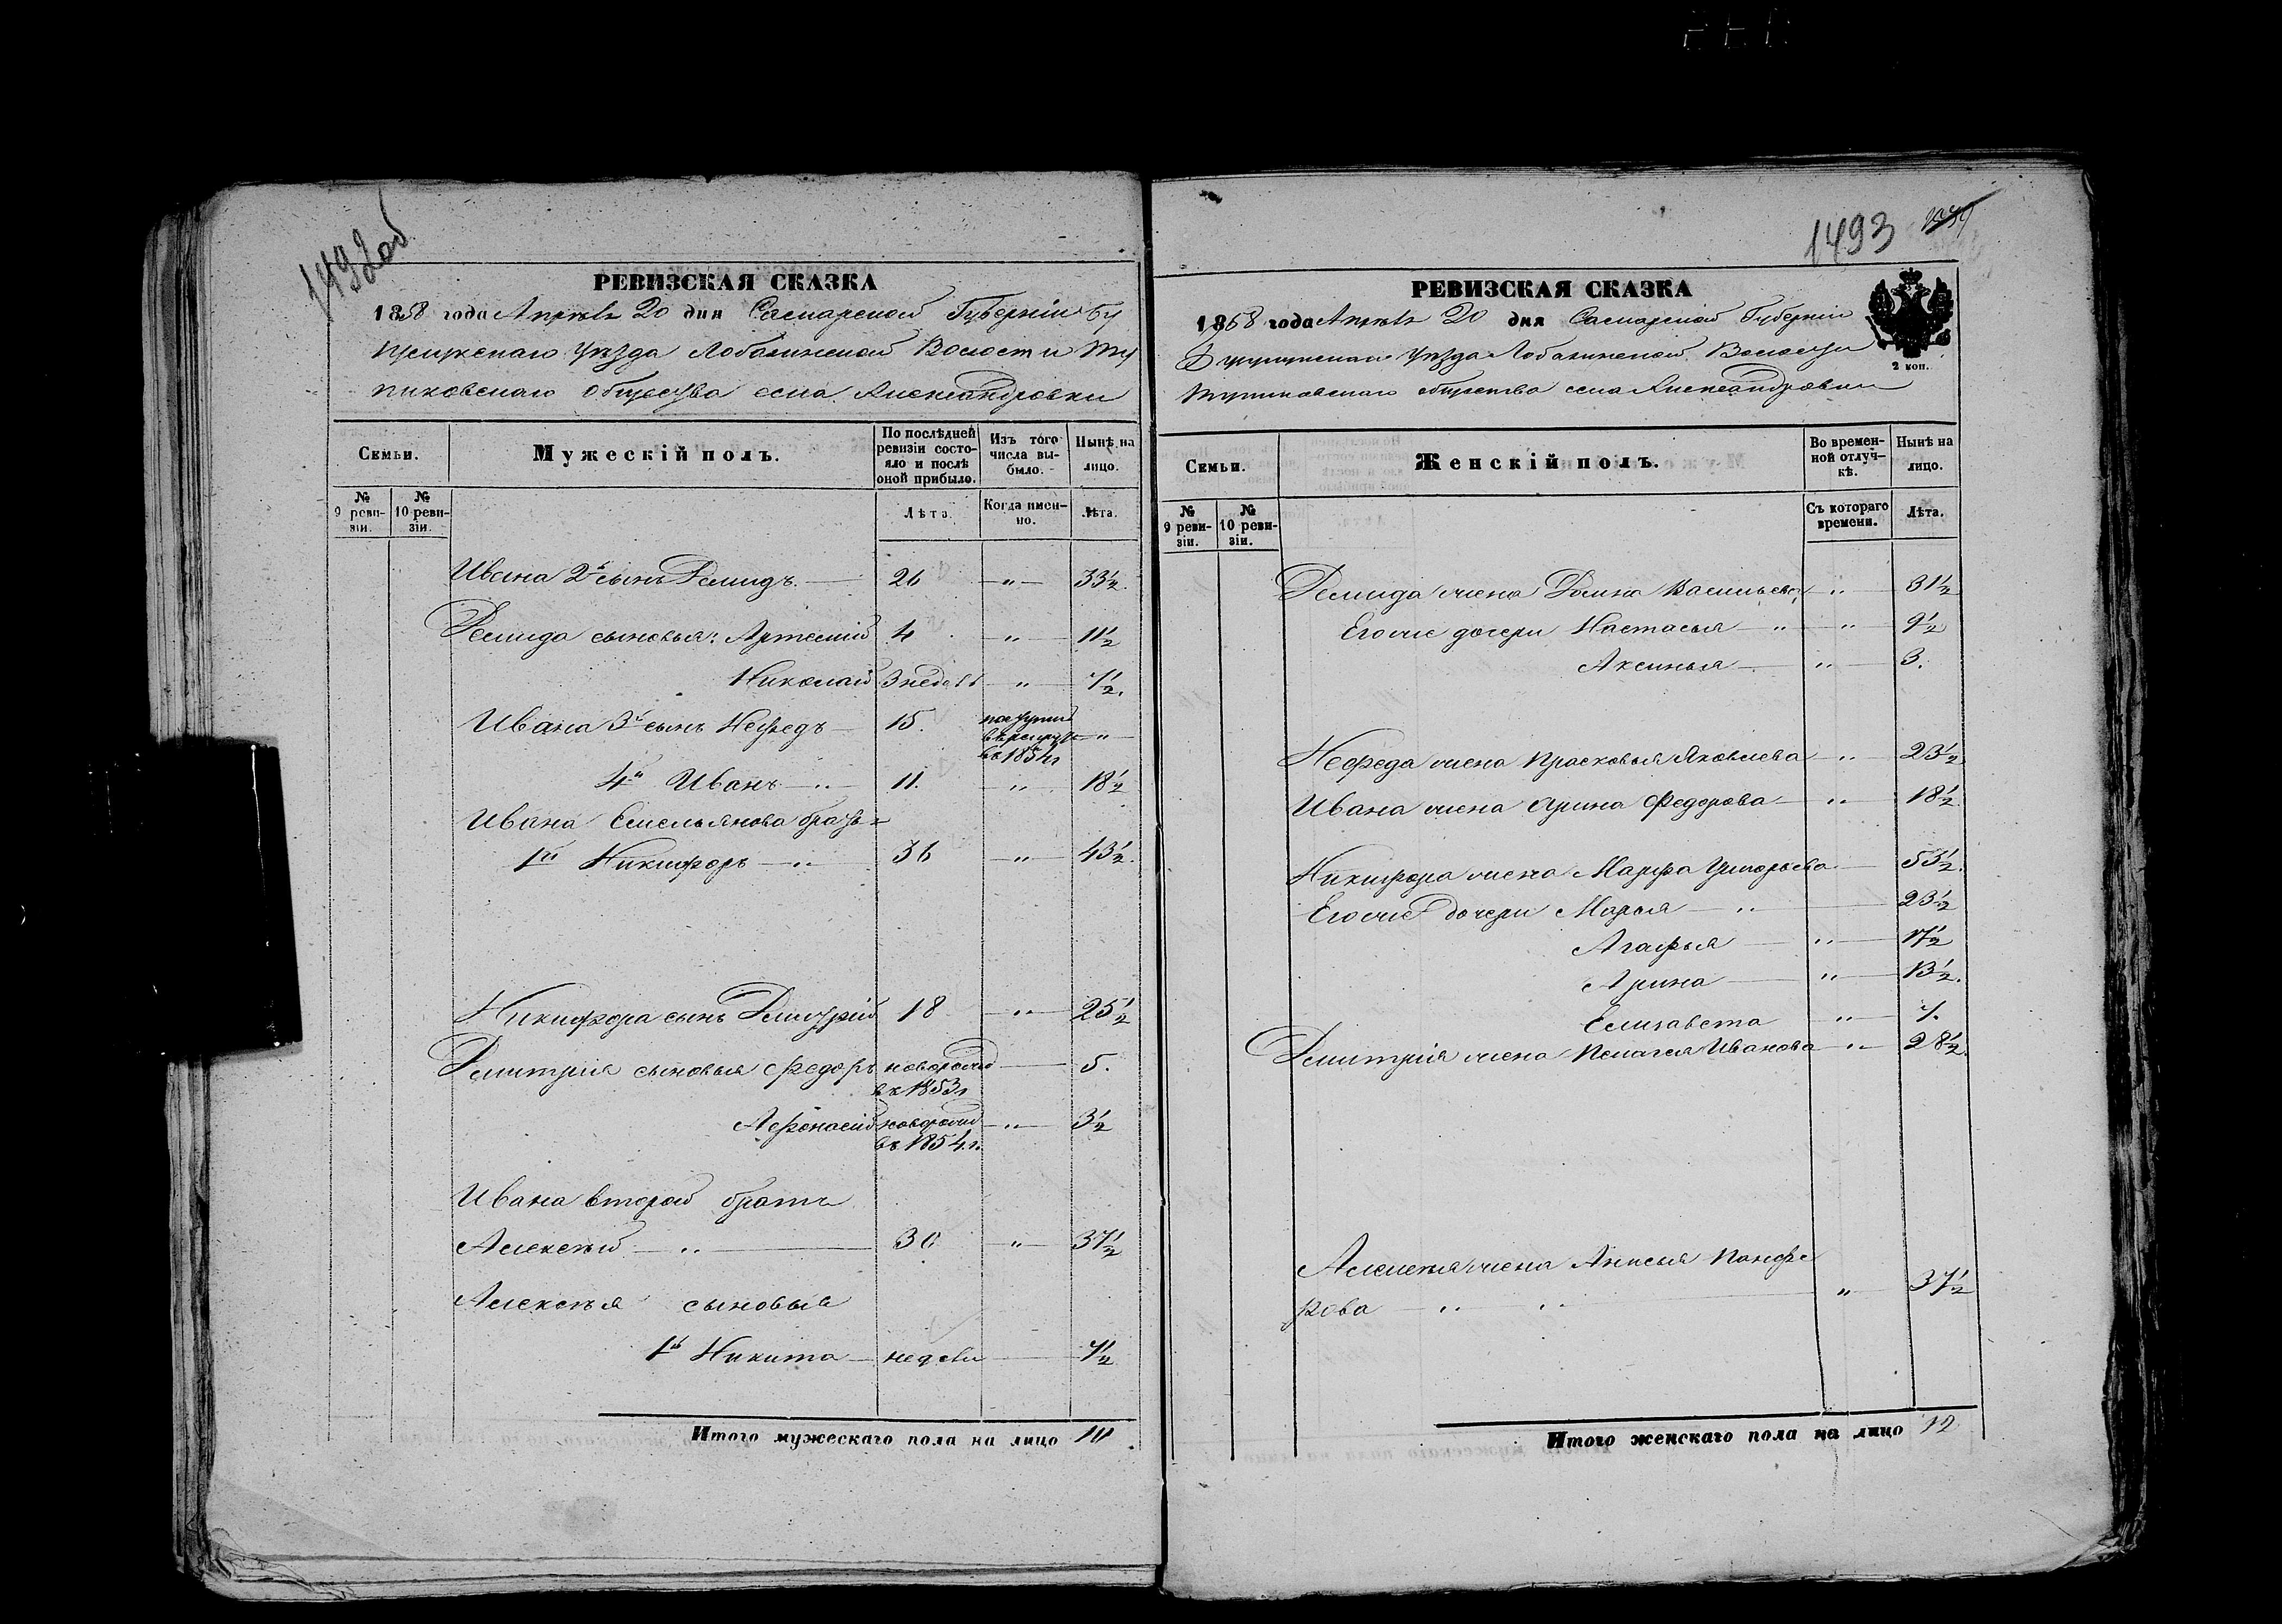 1492об
РЕВИЗСКАЯ СКАЗКА
1858 года Апрѣля 20 дня Самарской Губерніи Бу
гульскаго уѣзда Лобазинской Волости
общества села Александровки
Семьи.
Мужескій полъ.
По послѣдней ревизіи состояло и послѣ оной прибыло.
Изъ того числа выбыло.
Нынѣ на лицо.
№ 9 ревизіи.
№ 10 ревизіи.
Лѣта.
Когда именно.
Лѣта.
Ивана 2й сынъ Демидъ — 26 — " — 33½.
Демида сыновья: Артемій 4 — " — 11½
Николай 3 недѣл — " — 7½.
Ивана 3й сынъ Нефедъ — 15. поступил
в рекруты — " —
въ 1854 г
4й Иванъ — " — 11. — " — 18½
Ивана Емельянова братья
1й Никифоръ — " — 36 — " — 43½.
Никифора сынъ Дмитрій 18 — " — 25½
Дмитрія сыновья Федоръ новорожд — 5.
въ 1853 г
Афонасій новорожд — " — 3½
въ 1854 г.
Ивана второй братъ
Алексѣй — " — 30 — " — 37½
Алексѣя сыновья
1й Никита — недѣли — 7½
Итого мужескаго пола на лицо 10
1493
РЕВИЗСКАЯ СКАЗКА
1858 года Апрѣля 20 дня Самарской Губерніи
уѣзда Лобазинской Волости
общества села Александровки
2 коп.
Семьи.
Женскій полъ.
Во временной отлучкѣ.
Нынѣ на лицо.
№ 9 ревизіи.
№ 10 ревизіи.
Съ котораго времени.
Лѣта.
Демида жена Домна Васильева — " — 31½
Его же дочери Настасья — " — " — 9½
Аксинья — " — 3.
Нефеда жена Прасковья Яковлева — " — 23½
Ивана жена Арина Федорова — " — 18½
Никифора жена Марфа Григорьева — 53½.
Его же дочери Марья — " — 23½
Агафья — " — 17½
Арина — " — 13½.
Елизавета " — 7.
Дмитрія жена Пелагея Иванова — " — 28½.
Алексѣя жена Анисья Панфе
рова — " — " — " — 37½
Итого женскаго пола на лицо 12